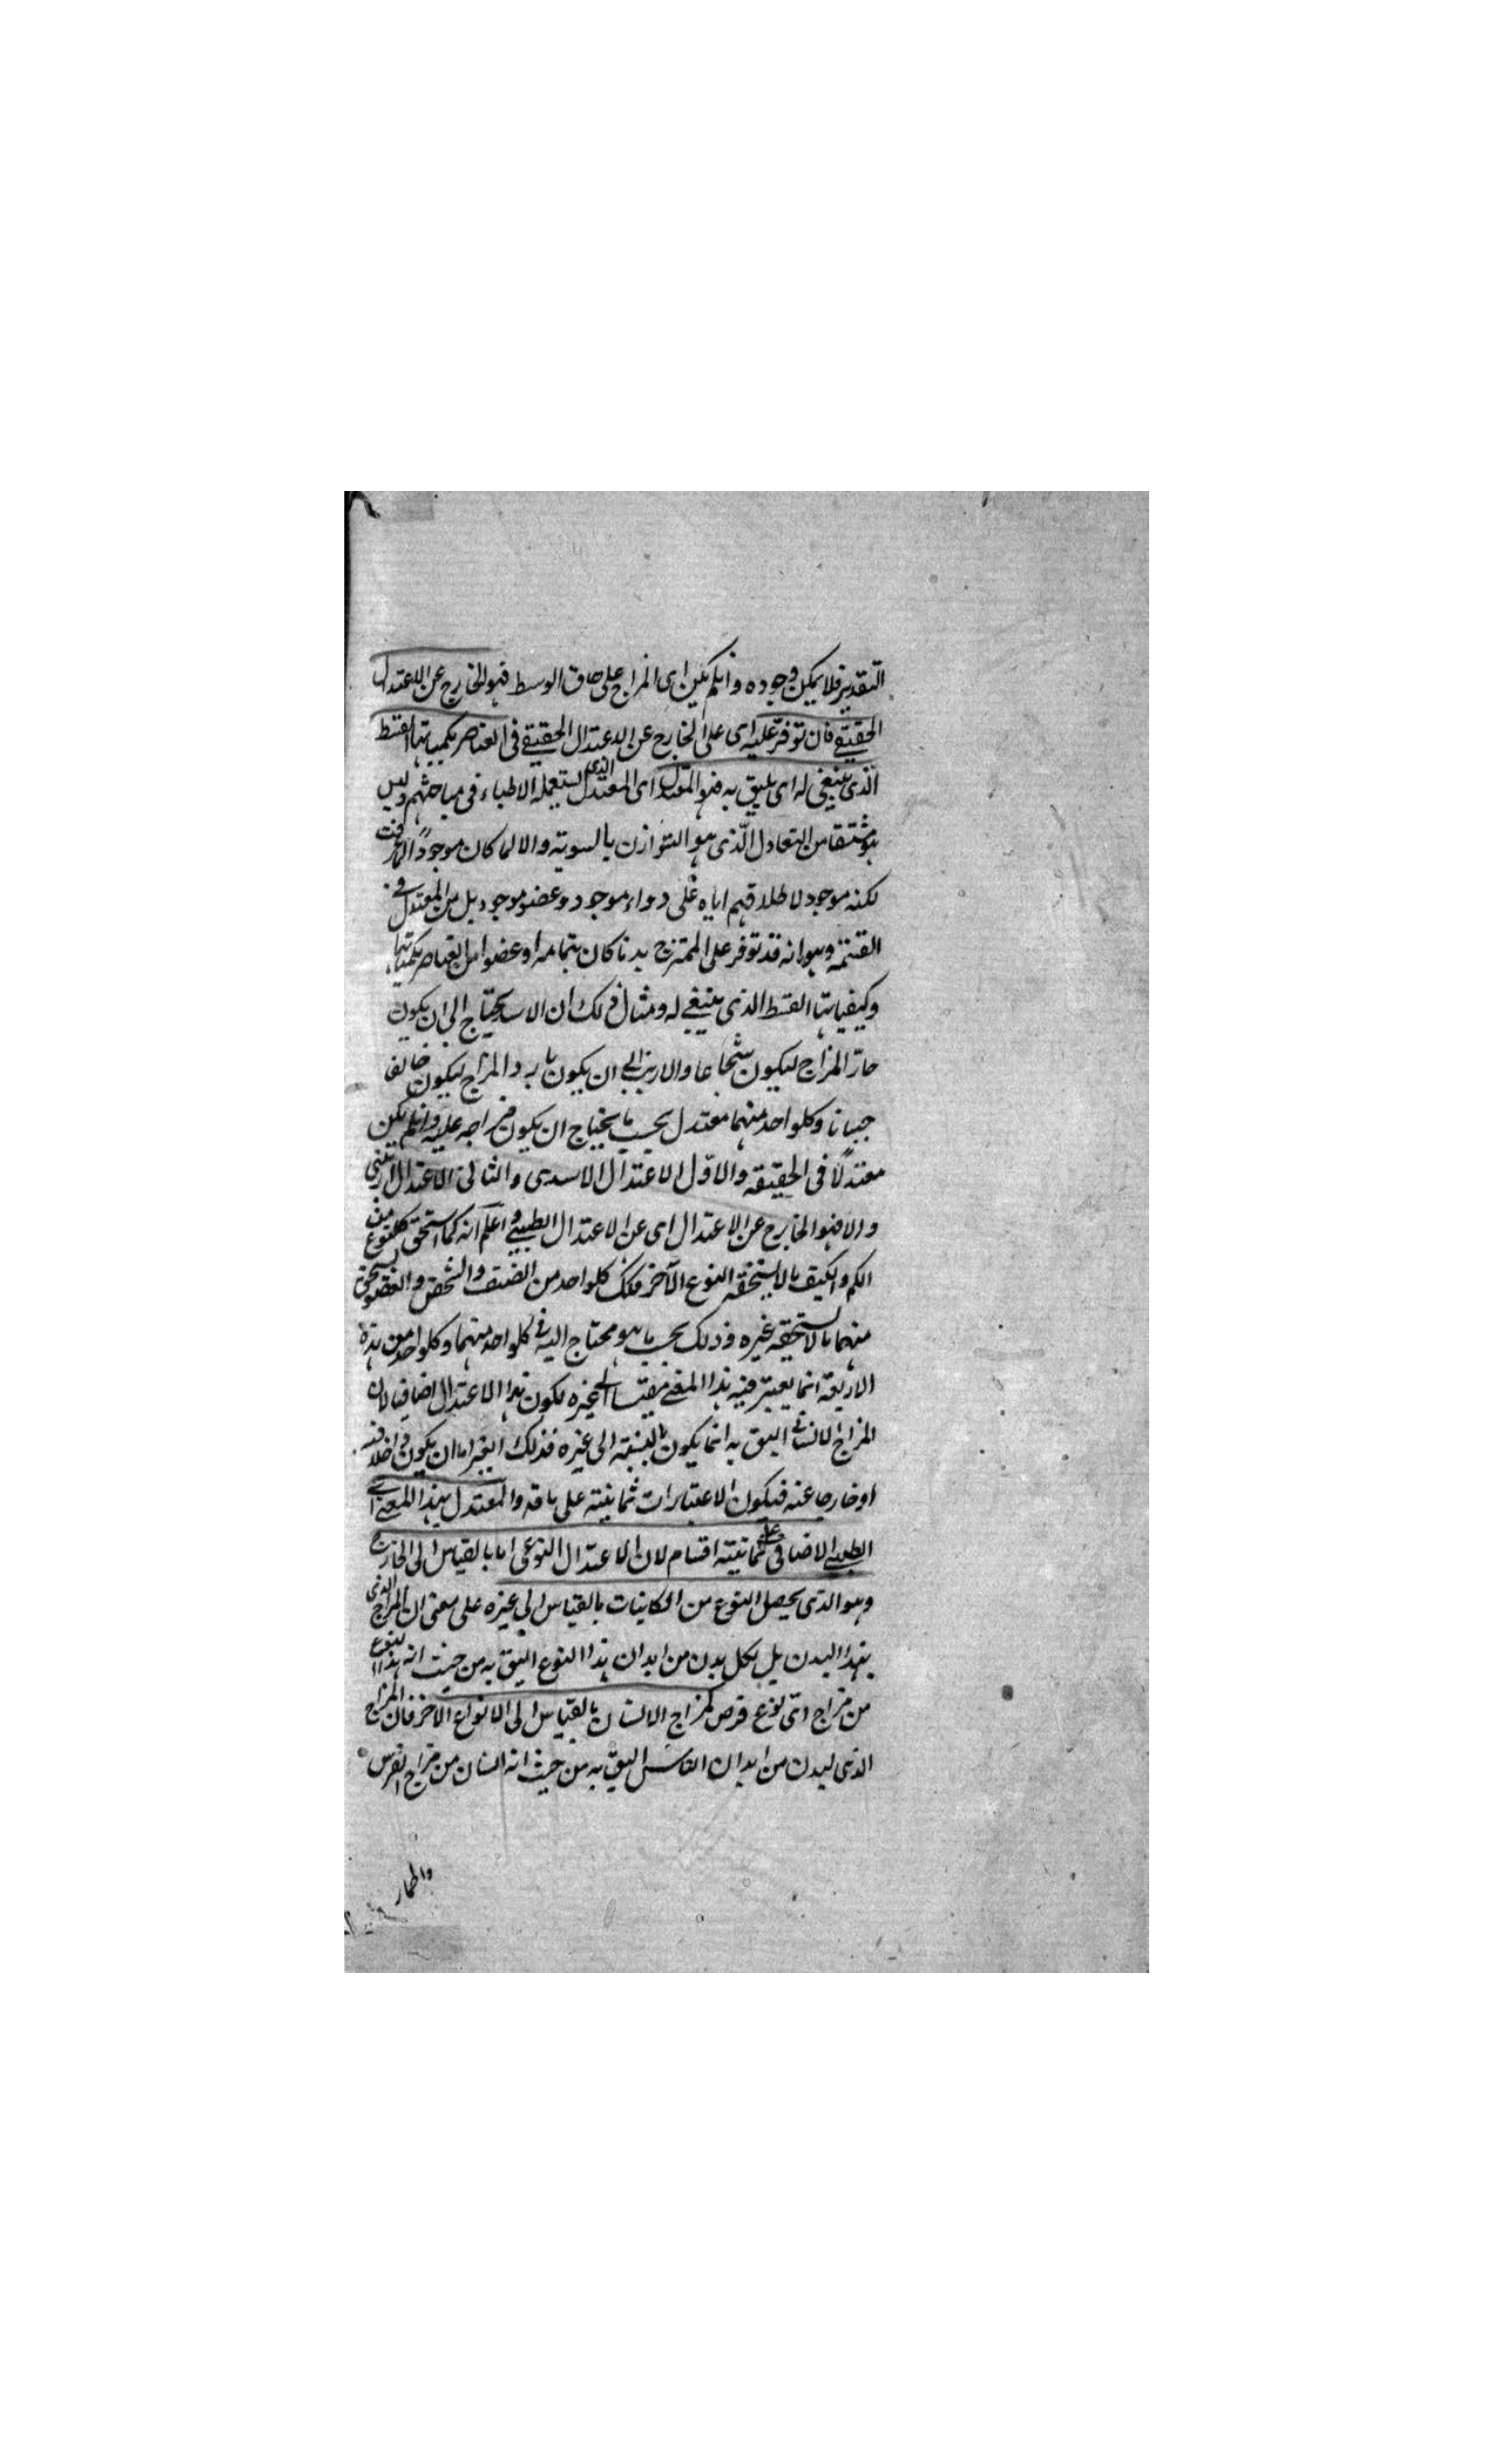 التقدير فلا يمكن وجوده وان لم يكن اى المزاج على حاق الوسط فهو الخارج عن الاعتدال
الحقيقے فان توفر عليه اى على الخارج عن الاعتدال الحقيقے فى العناصر بكمياتها القسط
الذى ينبغى له اى يليق به فهو المعتدل اى المعتدل الذى يستعمله الاطباء فى مباحثهم وليس
هو مشتقا من التعادل الذى هو التوازن بالسوية والا لما كان موجودا
لكنه موجود لاطلاقهم اياه على دواء موجود وعضو موجود بل من المعتدل فى
القسمة وهو انه قد توفر على الممتزج بدنا كان بتمامه او عضوا من العناصر بكمياتها
وكيفياتها القسط الذى ينبغے له ومثال ذلك ان الاسد يحتاج الى ان يكون
حار المزاج ليكون شجاعا والارنب الى ان يكون بارد المزاج ليكون خائفا
جبانا وكلواحد منهما معتدل بحسب ما يحتاج ان يكون مزاجه عليه وان لم يكن
معتدلا فى الحقيقه والاول الاعتدال الاسدى والثانى الاعتدال الارنبى
والا فهو الخارج عن الاعتدال اى عن الاعتدال الطبيے واعلم انه كما استحق كلنوع من
الكم والكيف ما لا يستحقه النوع الآخر فكذلك كلواحد من الصنف والشخص والعضو يستحق
منهما ما لا يستحقه غيره وذلك بحسب ما هو محتاج اليه فى كلواحد منهما وكلواحد من هذه
الاربعة انما يعتبر فيه هذا المعنے مقيسا الى غيره لكون هذا الاعتدال اضافيا لان
المزاج الانسانى اليق به انما يكون بالنسبة الى غيره فذلك الغير اما ان يكون داخلا فيه
او خارجا عنه فيكون الاعتبارات ثمانية على ما قد والمعتدل بهذا المعنے اے
الطبے الاضافى على ثمانية اقسام لان الاعتدال النوعى اما بالقياس الى الخارج
وهو الذى يحصل النوع من الكاينات بالقياس الى غيره على معنى ان المزاج الذى
لهذا البدن بل لكل بدن من ابدان هذا النوع اليق به من حيث انه هذا النوع
من مزاج اى نوع فرض كمزاج الانسان بالقياس الى الانواع الآخر فان المزاج
الذى لبدن من ابدان الناس اليق به من حيث انه انسان من مزاج الفرس
والحمار